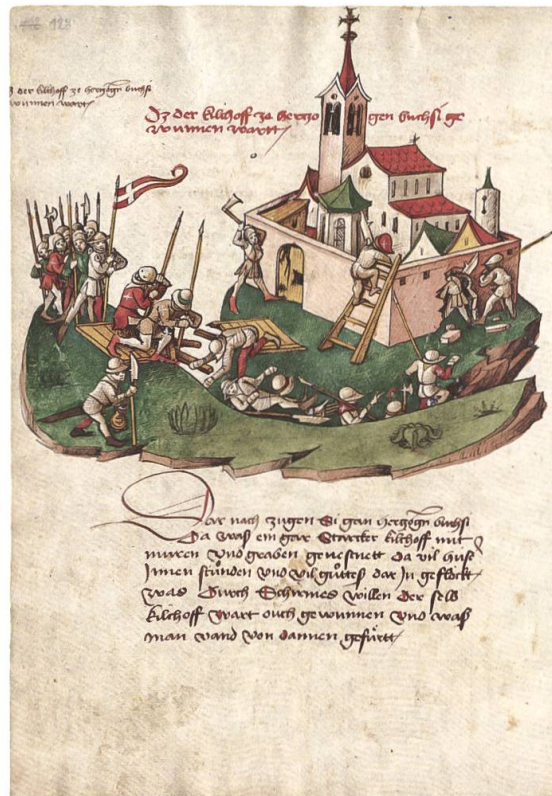 128
der kilchoff ze hertzogen buchsi
wunnen wart
Dz der kilchoff ze hertzo gen buchsi ge
wunnen wartt
Dar nach zugen Si gan hertzogen buchsi
Da waz ein gar Starcker kilchoff mit
muren vnd graben geuestnett da vil huser
Jnnen stůnden vnd vil gůttes dar Jn geflöckt
waz Durch Schirmes willen Der selb
kilchoff wart ouch gewunnen vnd waß
man vand von dannen gefürtt